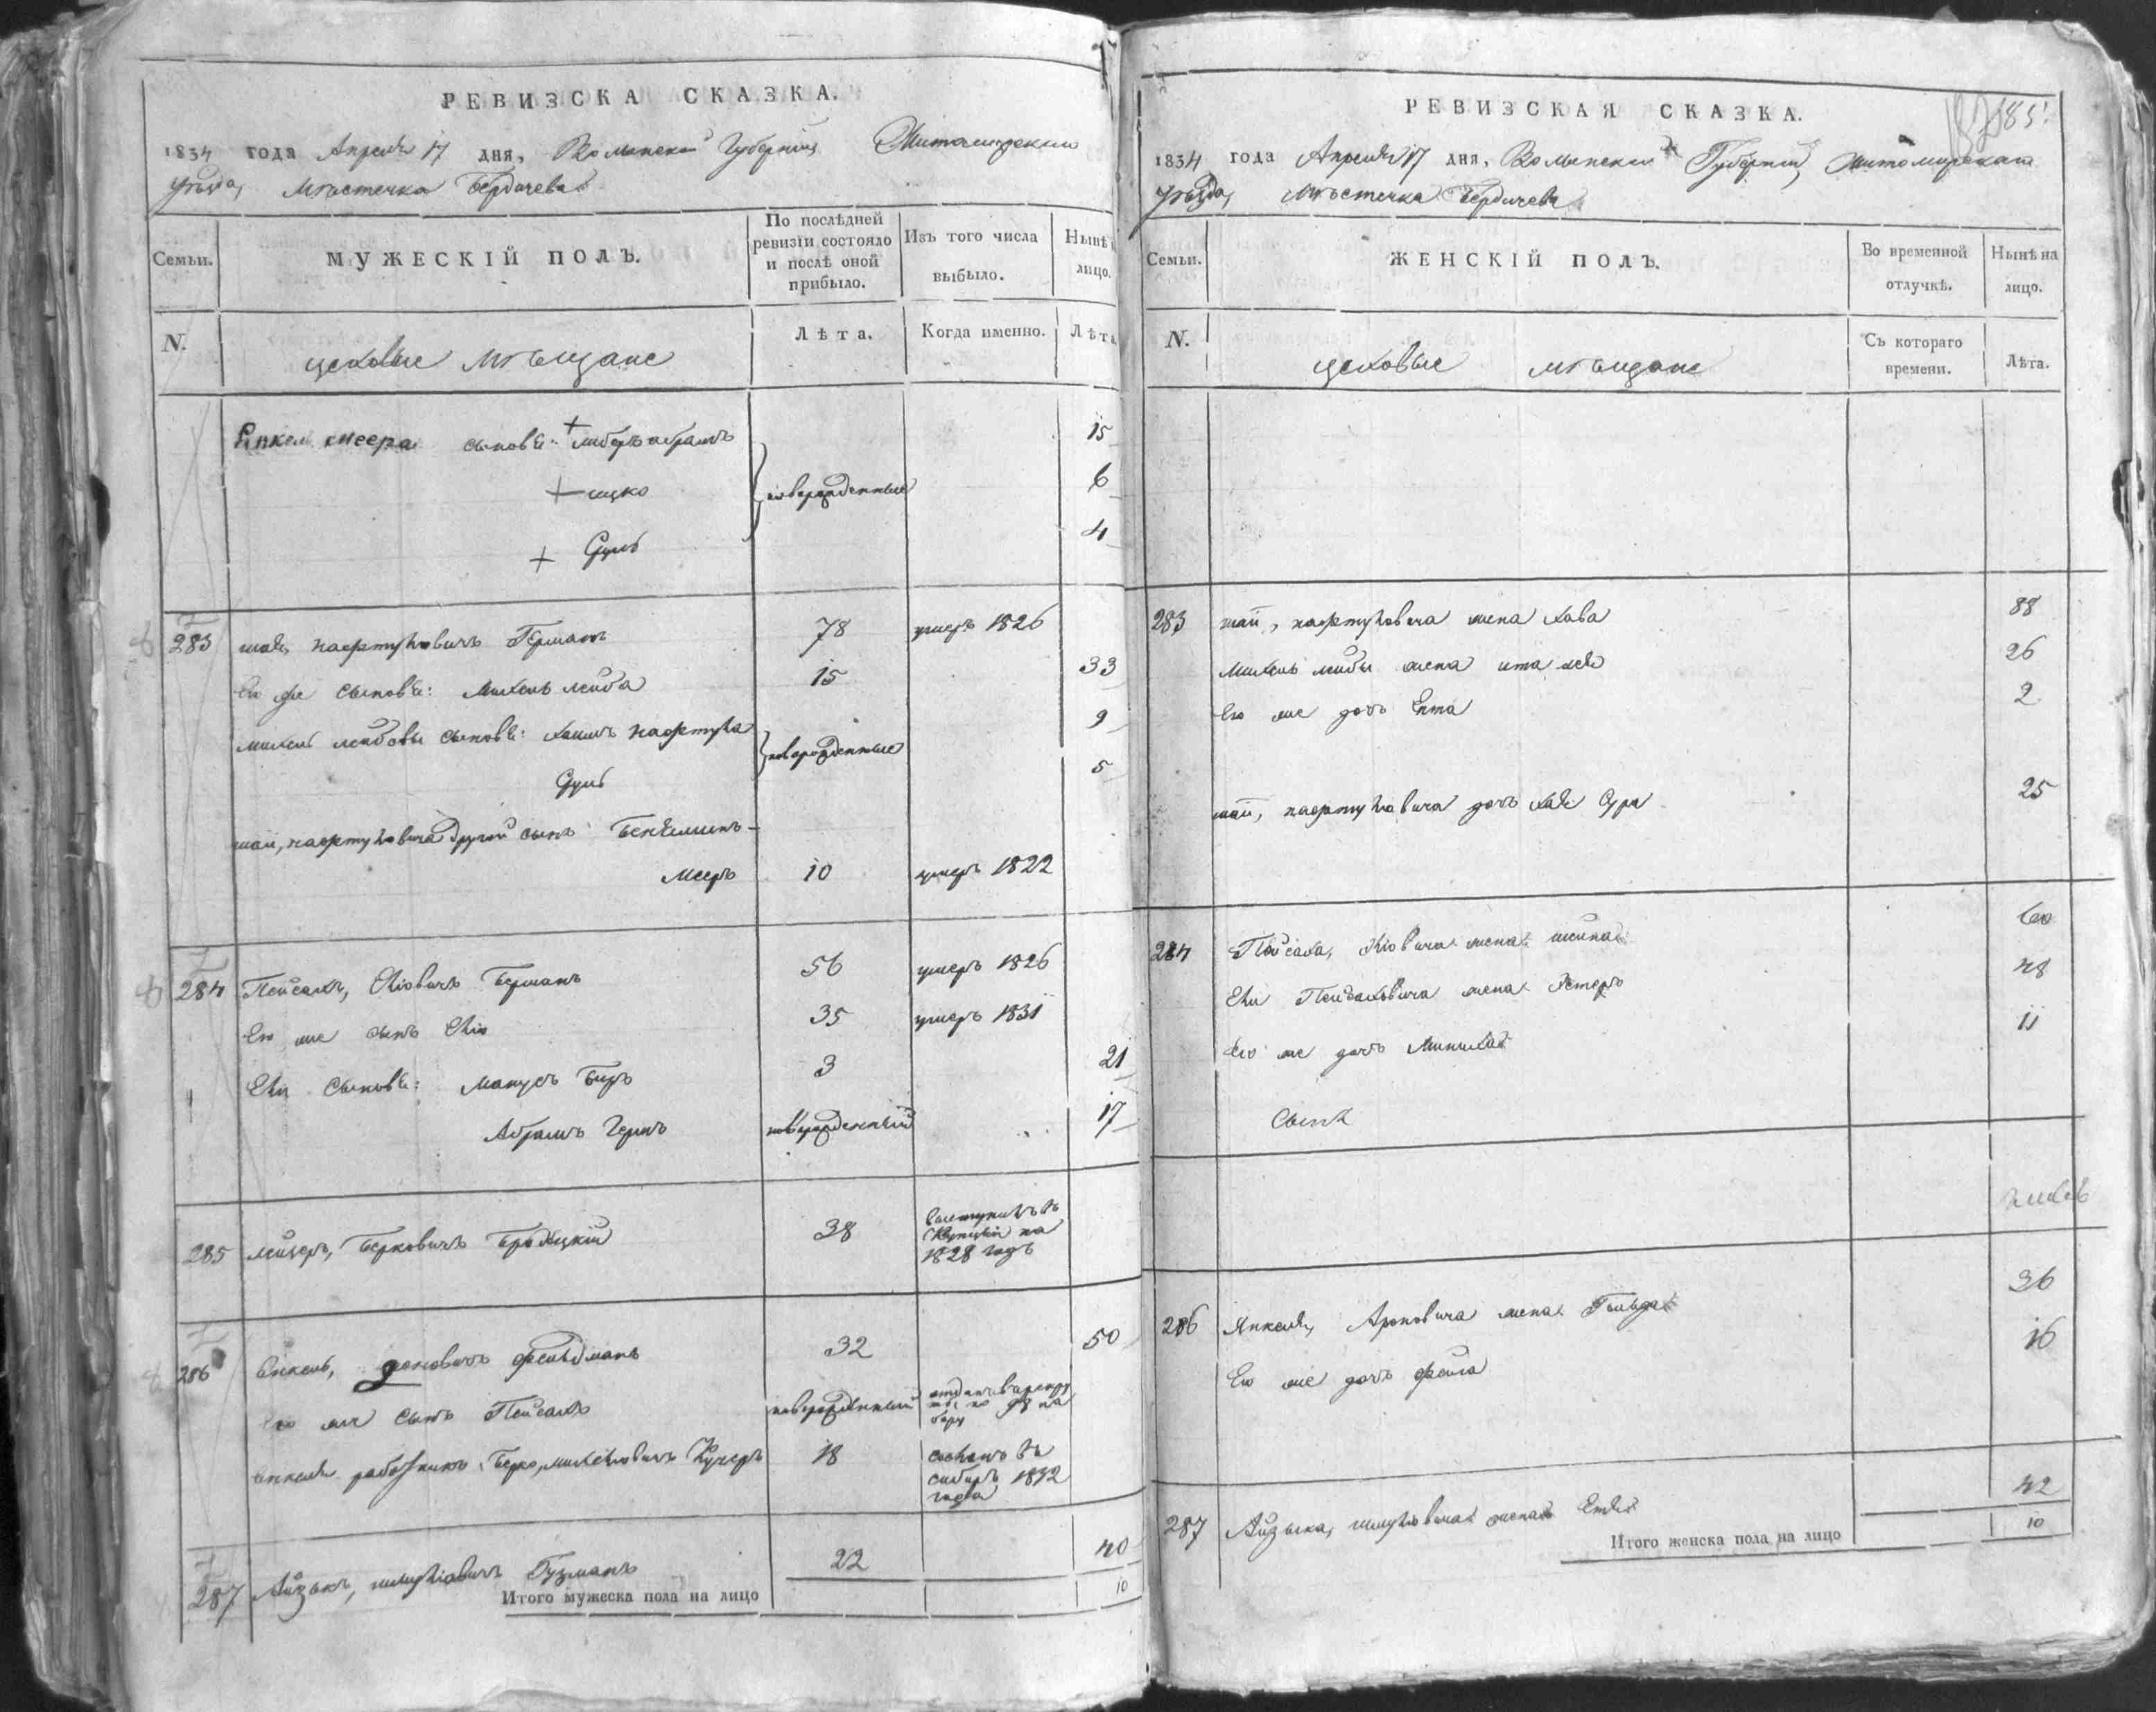 РЕВИЗСКА СКАЗКА.
1834 года Апреля 17 дня, Волынской Губернiи Житомирскаго
уѣзда, мѣстечка Бердичева
Семьи.
МУЖЕСКIЙ ПОЛЪ.
По послѣдней
ревизiи состояло
и послѣ оной
прибыло.
Изъ того числа
выбыло.
Нынѣ
лицо.
N.
цеховые мѣщане
Лѣта.
Когда именно.
Лѣта
меера сыновья: лейберъ абрамъ 15
ицко новорожденные 6
Сруль 4
283 шая, нафтуловичъ Германъ 78 умеръ 1826
Его же сыновья: Михель лейба 15 33
михель лейбовы сыновья: хаимъ нафтула 9
новорожденные
Сруль 5
шаи, нафтуловича другой сынъ Бенъяминъ-
Мееръ 10 умеръ 1822
284 Пейсахъ, Елiовичъ Берманъ 56 умеръ 1826
Его же сынъ Елiо 35 умеръ 1831
Ели сыновья: Манусъ Беръ 3 21
Абрамъ Герцъ новорожденный 17
285 лейзеръ, Берковичъ Бродецкiй 38
на
1828 годъ
286 Янкель, Ароновичъ фельдманъ 32 50
Его же сынъ Пейсахъ новорожденный
Янкеля работникъ Берко, михелiовичъ Кучеръ 18 сосланъ въ
сибирь 1832
года
287 Айзыкъ, шмулiовичъ Гузманъ 22 40
Итого мужеска пола на лицо 10
РЕВИЗСКАЯ СКАЗКА.
185
1834 года Апреля 17 дня, Волынской Губернiи, Житомирскаго
уѣзда, мѣстечка Бердичева
Семьи.
ЖЕНСКIЙ ПОЛЪ.
Во временной
отлучкѣ.
Нынѣ на
лицо.
N.
цеховые мѣщане
Съ котораго
времени.
Лѣта.
283 шаи, нафтуловича жена хава 88
михель лейбы жена ита лея 26
Его же дочь Ента 2
шаи, нафтуловича дочь хая Сура 25
284 Пейсаха, Елiовича жена шейна 60
Ели Пейсаховича жена Эстеръ 48
Его же дочь 11
286 Янкеля, Ароновича жена Гольда 36
Его же дочь фейга 16
287 Айзыка, шмулiовича жена Етля 42
Итого женска пола на лицо 10